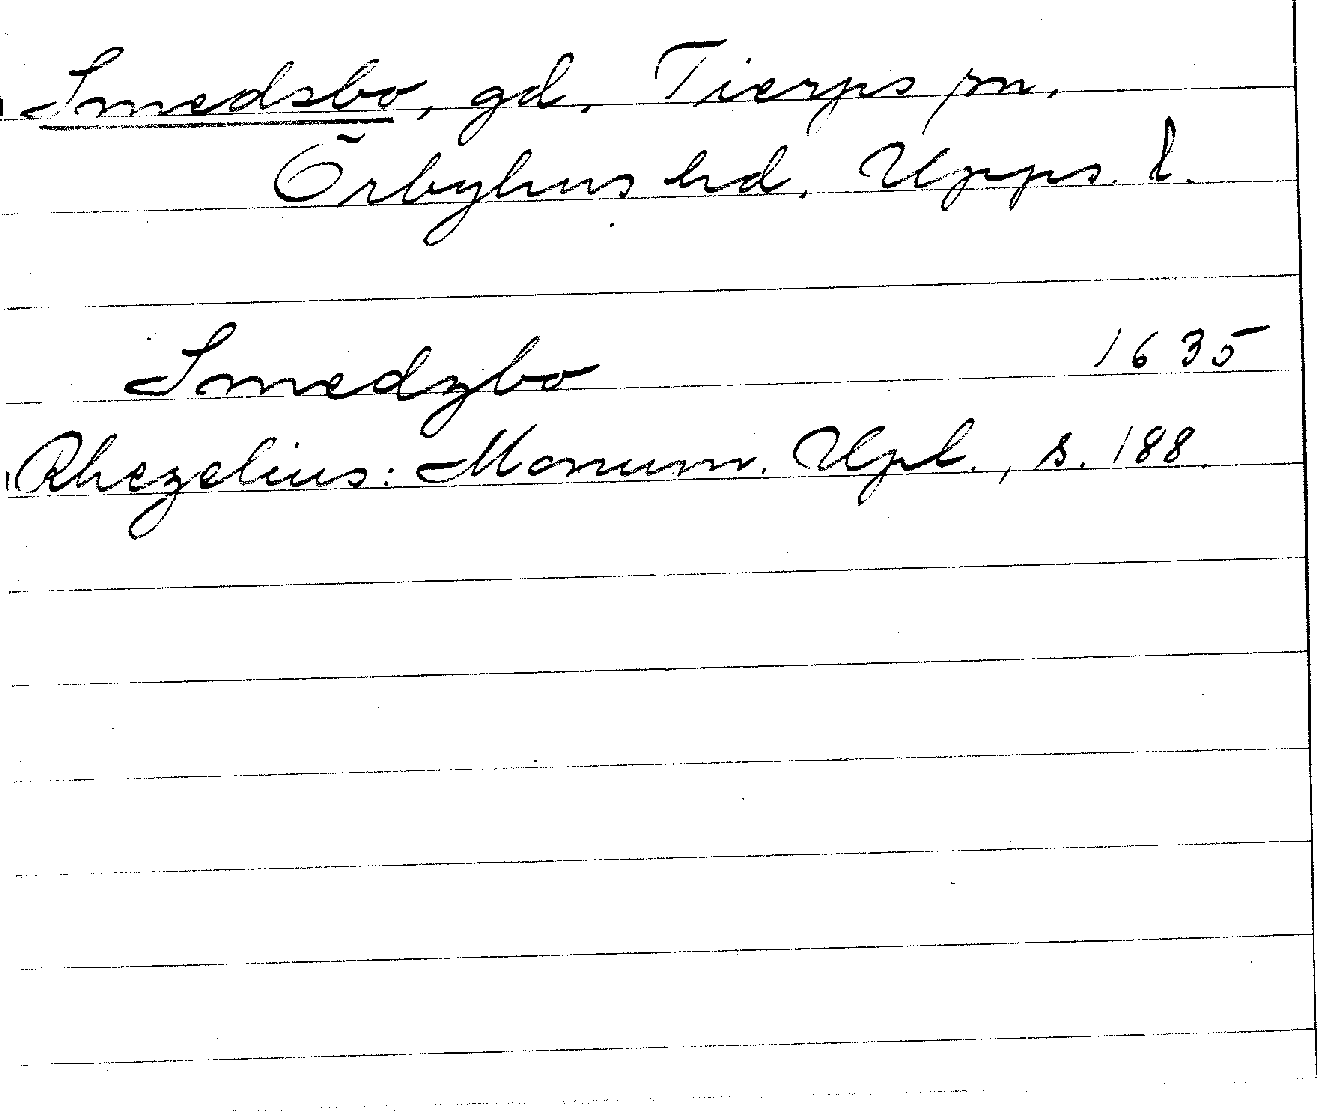 Smedsbo, gd, Tierps sn,
Örbyhus hd, Upps. l.
Smedzbo 1635
Rhezelius: Monum. Upl., s. 188.